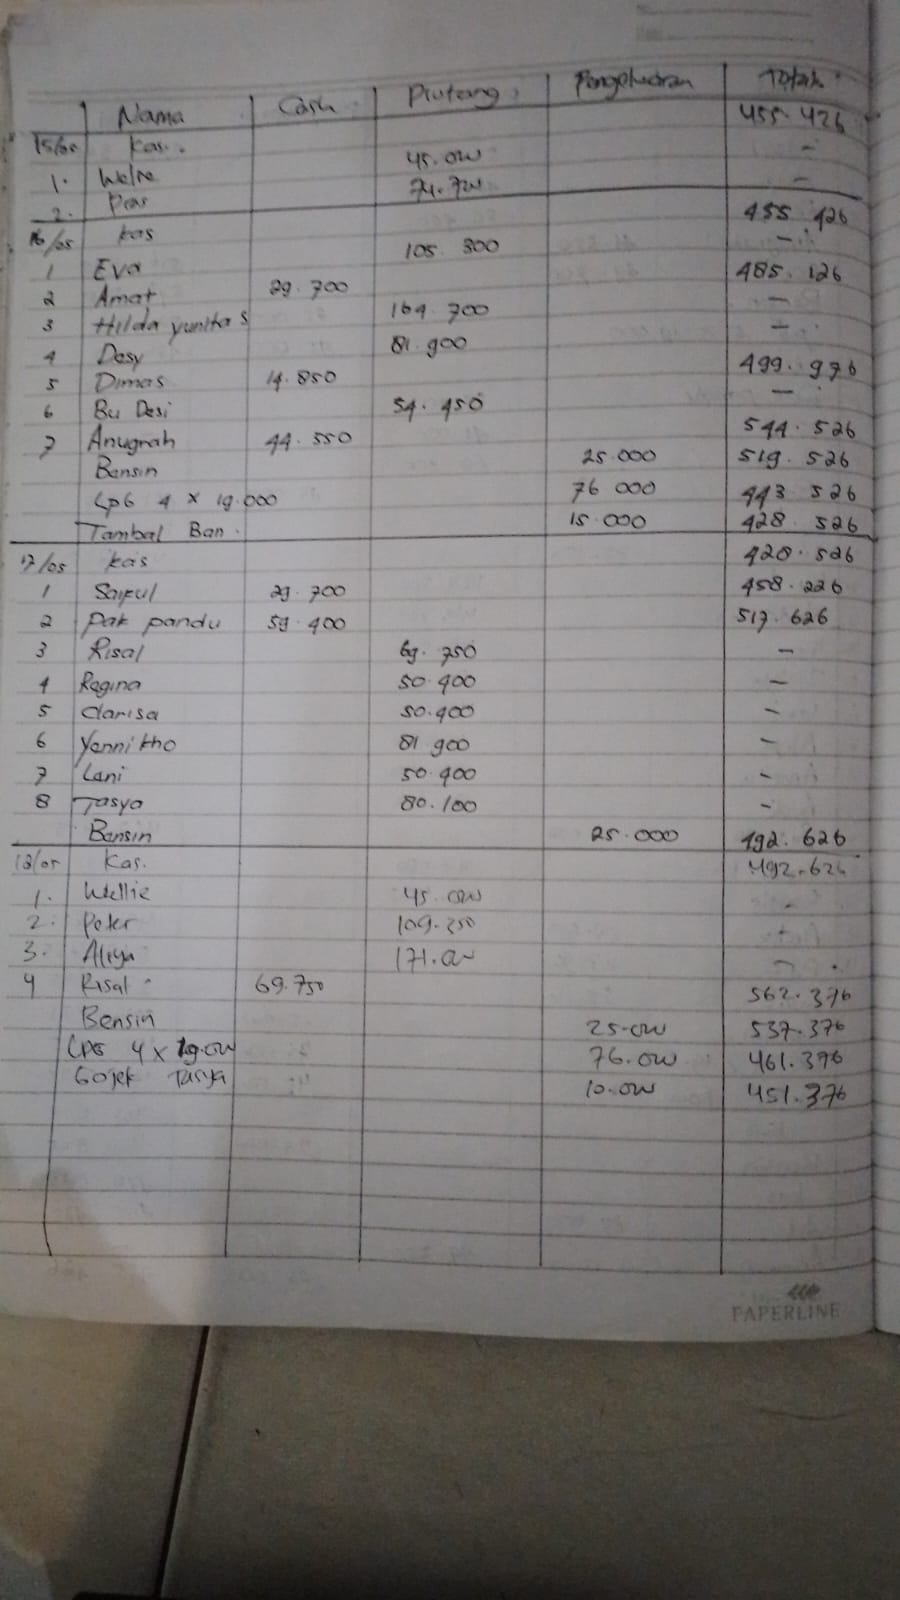 Nama Cash Piutang Pengeluaran Total
15/05 Kas. 455.426
1. Welne 45.000 -
2. Pras 74.700 -
16/05 kas 455.426
1 Eva 105.300 -
2 Amat 29.700 485.126
3 Hilda yunita S 164.700 -
4 Desy 81.900 -
5 Dimas 14.850 499.976
6 Bu Desi 54.450 -
7 Anugrah 44.550 544.526
Bensin 25.000 519.526
LPG 4 x 19.000 76 000 443 526
Tambal Ban. 15.000 428.526
17/05 kas 428.526
1 Saiful 29.700 458.226
2 Pak pandu 59.400 517.626
3 Risal 69.750 -
4 Regina 50.400 -
5 Clarisa 50.400 -
6 Yenni kho 81 900 -
7 Lani 50.400 -
8 Tasya 80.100 -
Bensin 25.000 492.626
18/05 Kas. 492.626
1. Wellie 45.000 -
2. Peter 109.350 -
3. Aliya 171.000 -
4 Risal 69.750 562.376
Bensin 25.000 537.376
LPG 4 x 19.000 76.000 461.376
Gojek Tasya 10.000 451.376
PAPERLINE